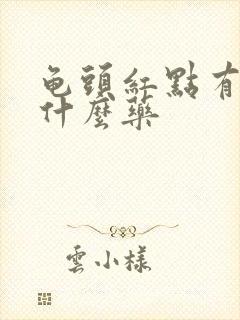 龟頭紅點有
什麼藥
雲小樣